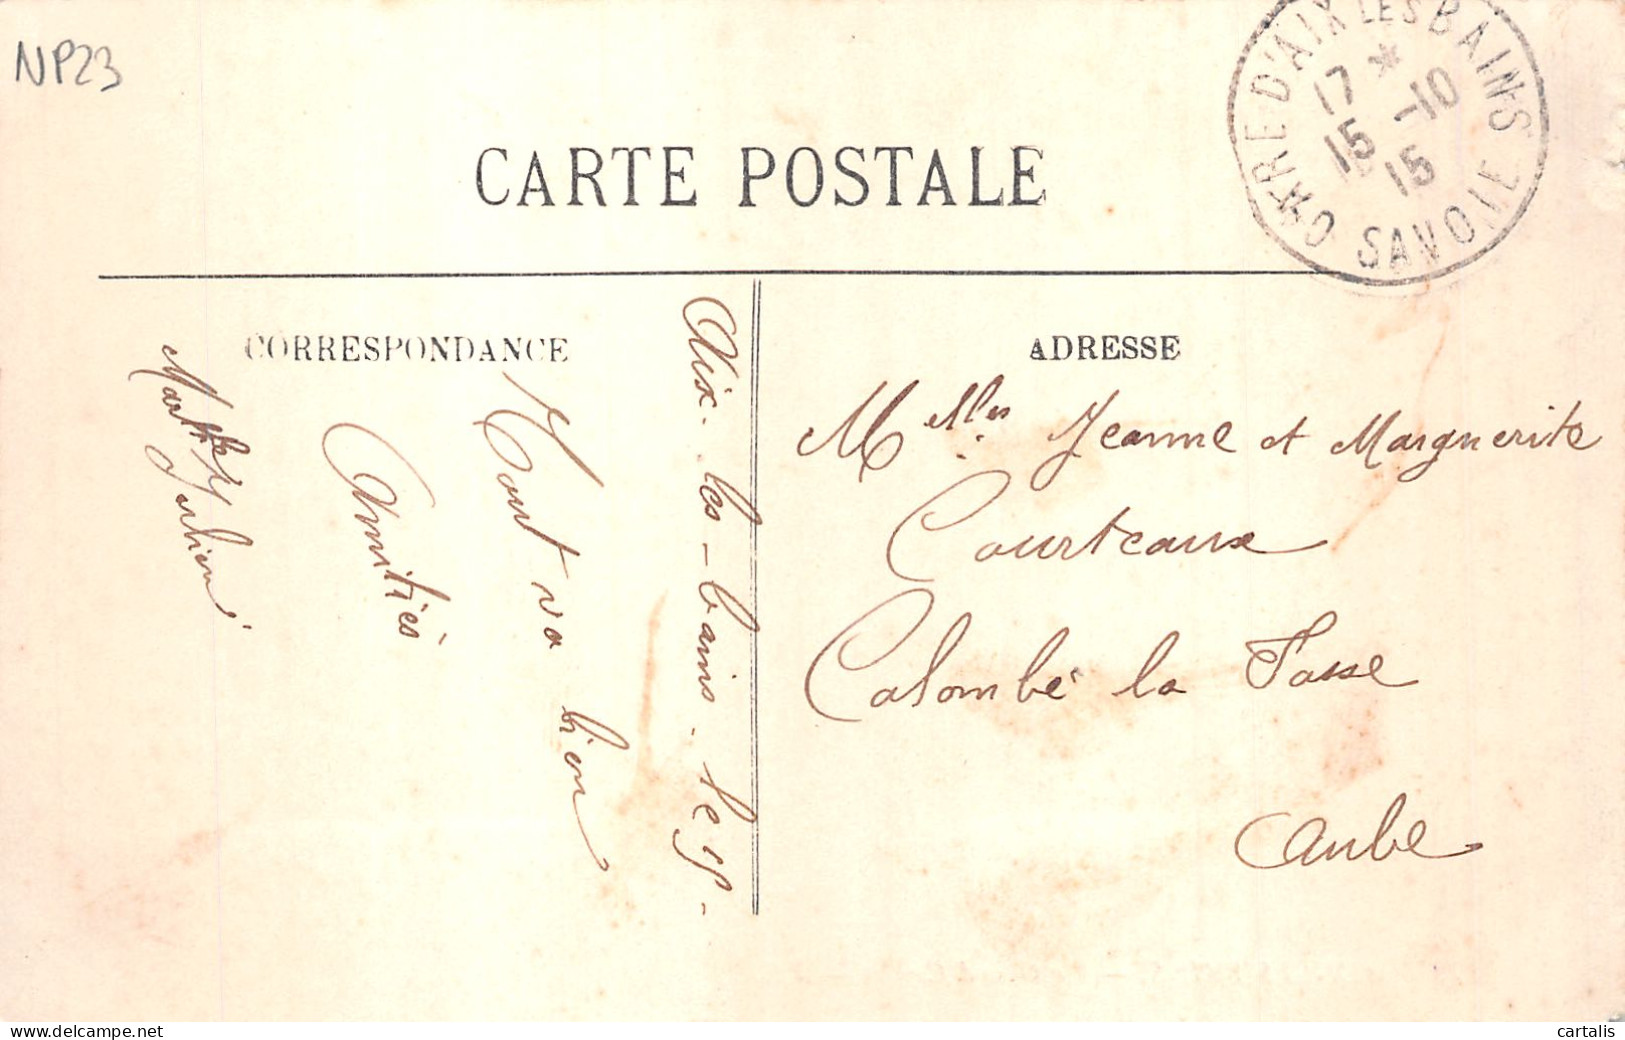 NP23
GARE D'AIX LES BAINS
*
17 15
15 -10
15
SAVOIE
CARTE POSTALE
CORRESPONDANCE
Aix-les-bains-le 15-
Tout va bien
Amitiés
Marthe Julien
ADRESSE
Melles Jeanne et Marguerite
Courteaux
Colombé la Fosse
Aube
cartalis
www.delcampe.net